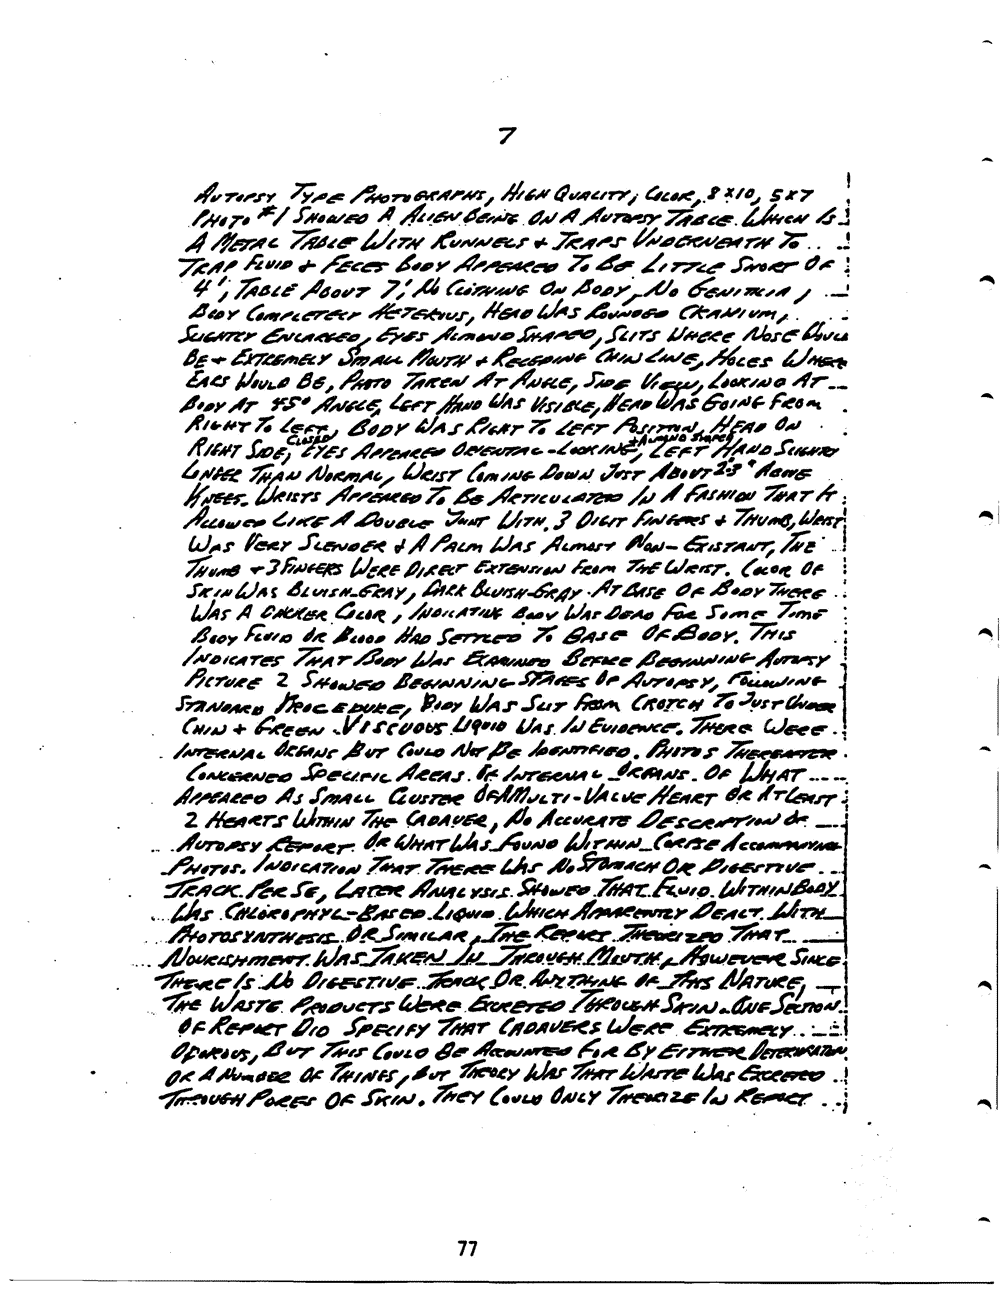 7
AUTOPSY TYPE PHOTOGRAPHS, HIGH QUALITY; COLOR, 8X10, 5X7
PHOTO #1 SHOWED A ALIEN BEING ON A AUTOPSY TABLE WHICH IS
A METAL TABLE WITH RUNNELS + TRAPS UNDERNEATH TO
TRAP FLUID + FECES BODY APPEARED TO BE LITTLE SHORT OF
4', TABLE ABOUT 7', NO CLOTHING ON BODY, NO GENITALIA,
BODY COMPLETELY HETERIUS, HEAD WAS ROUNDED CRANIUM,
SLIGHTLY ENLARGED, EYES ALMOND SHAPED, SLITS WHERE NOSE WOULD
BE + EXTREMELY SMALL MOUTH + RECEDING CHIN LINE, HOLES WHERE
EARS WOULD BE, PHOTO TAKEN AT ANGLE, SIDE VIEW, LOOKING AT
BODY AT 45° ANGLE, LEFT HAND WAS VISIBLE, HEAD WAS GOING FROM
RIGHT TO LEFT, BODY WAS RIGHT TO LEFT POSITION, HEAD ON
RIGHT SIDE, CLOSED EYES APPEARED ORIENTAL-LOOKING + ALMOND SHAPED, LEFT HAND SLIGHTLY
LONGER THAN NORMAL, WRIST COMING DOWN JUST ABOUT 2-3" ABOVE
KNEES. WRISTS APPEARED TO BE ARTICULATED IN A FASHION THAT IT
ALLOWED LIKE A DOUBLE JOINT WITH 3 DIGIT FINGERS + THUMB, WRIST
WAS VERY SLENDER + A PALM WAS ALMOST NON-EXISTANT, THE
THUMB + 3 FINGERS WERE DIRECT EXTENSION FROM THE WRIST. COLOR OF
SKIN WAS BLUISH-GRAY, DARK BLUISH-GRAY. AT BASE OF BODY THERE
WAS A DARKER COLOR, INDICATING BODY WAS DEAD FOR SOME TIME
BODY FLUID OR BLOOD HAD SETTLED TO BASE OF BODY. THIS
INDICATES THAT BODY WAS EXAMINED BEFORE BEGINNING AUTOPSY
PICTURE 2 SHOWED BEGINNING STAGES OF AUTOPSY, FOLLOWING
STANDARD PROCEDURE, BODY WAS SLIT FROM CROTCH TO JUST UNDER
CHIN + GREEN VISCUOUS LIQUID WAS IN EVIDENCE. THERE WERE
INTERNAL ORGANS BUT COULD NOT BE IDENTIFIED. PHOTOS THEREAFTER
CONCERNED SPECIFIC AREAS OF INTERNAL ORGANS. OF WHAT
APPEARED AS SMALL CLUSTER OF A MULTI-VALVE HEART OR AT LEAST
2 HEARTS WITHIN THE CADAVER, NO ACCURATE DESCRIPTION OF
AUTOPSY REPORT OR WHAT WAS FOUND WITHIN CORPSE ACCOMPANYING
PHOTOS. INDICATION THAT THERE WAS NO STOMACH OR DIGESTIVE
TRACK PER SE, LATER ANALYSIS SHOWED THAT FLUID WITHIN BODY
WAS CHLOROPHYL-BASED LIQUID WHICH APPARENTLY DEALT WITH
PHOTOSYNTHESIS OR SIMILAR, THE REPORT THEORIZED THAT
NOURISHMENT WAS TAKEN IN THROUGH MOUTH, HOWEVER SINCE
THERE IS NO DIGESTIVE TRACK OR ANYTHING OF THIS NATURE,
THE WASTE PRODUCTS WERE EXCRETED THROUGH SKIN. ONE SECTION
OF REPORT DID SPECIFY THAT CADAVERS WERE EXTREMELY
ODOROUS, BUT THIS COULD BE ACCOUNTED FOR BY EITHER DETERIORATION
OR A NUMBER OF THINGS, BUT THEORY WAS THAT WASTE WAS EXCRETED
THROUGH PORES OF SKIN. THEY COULD ONLY THEORIZE IN REPORT
77